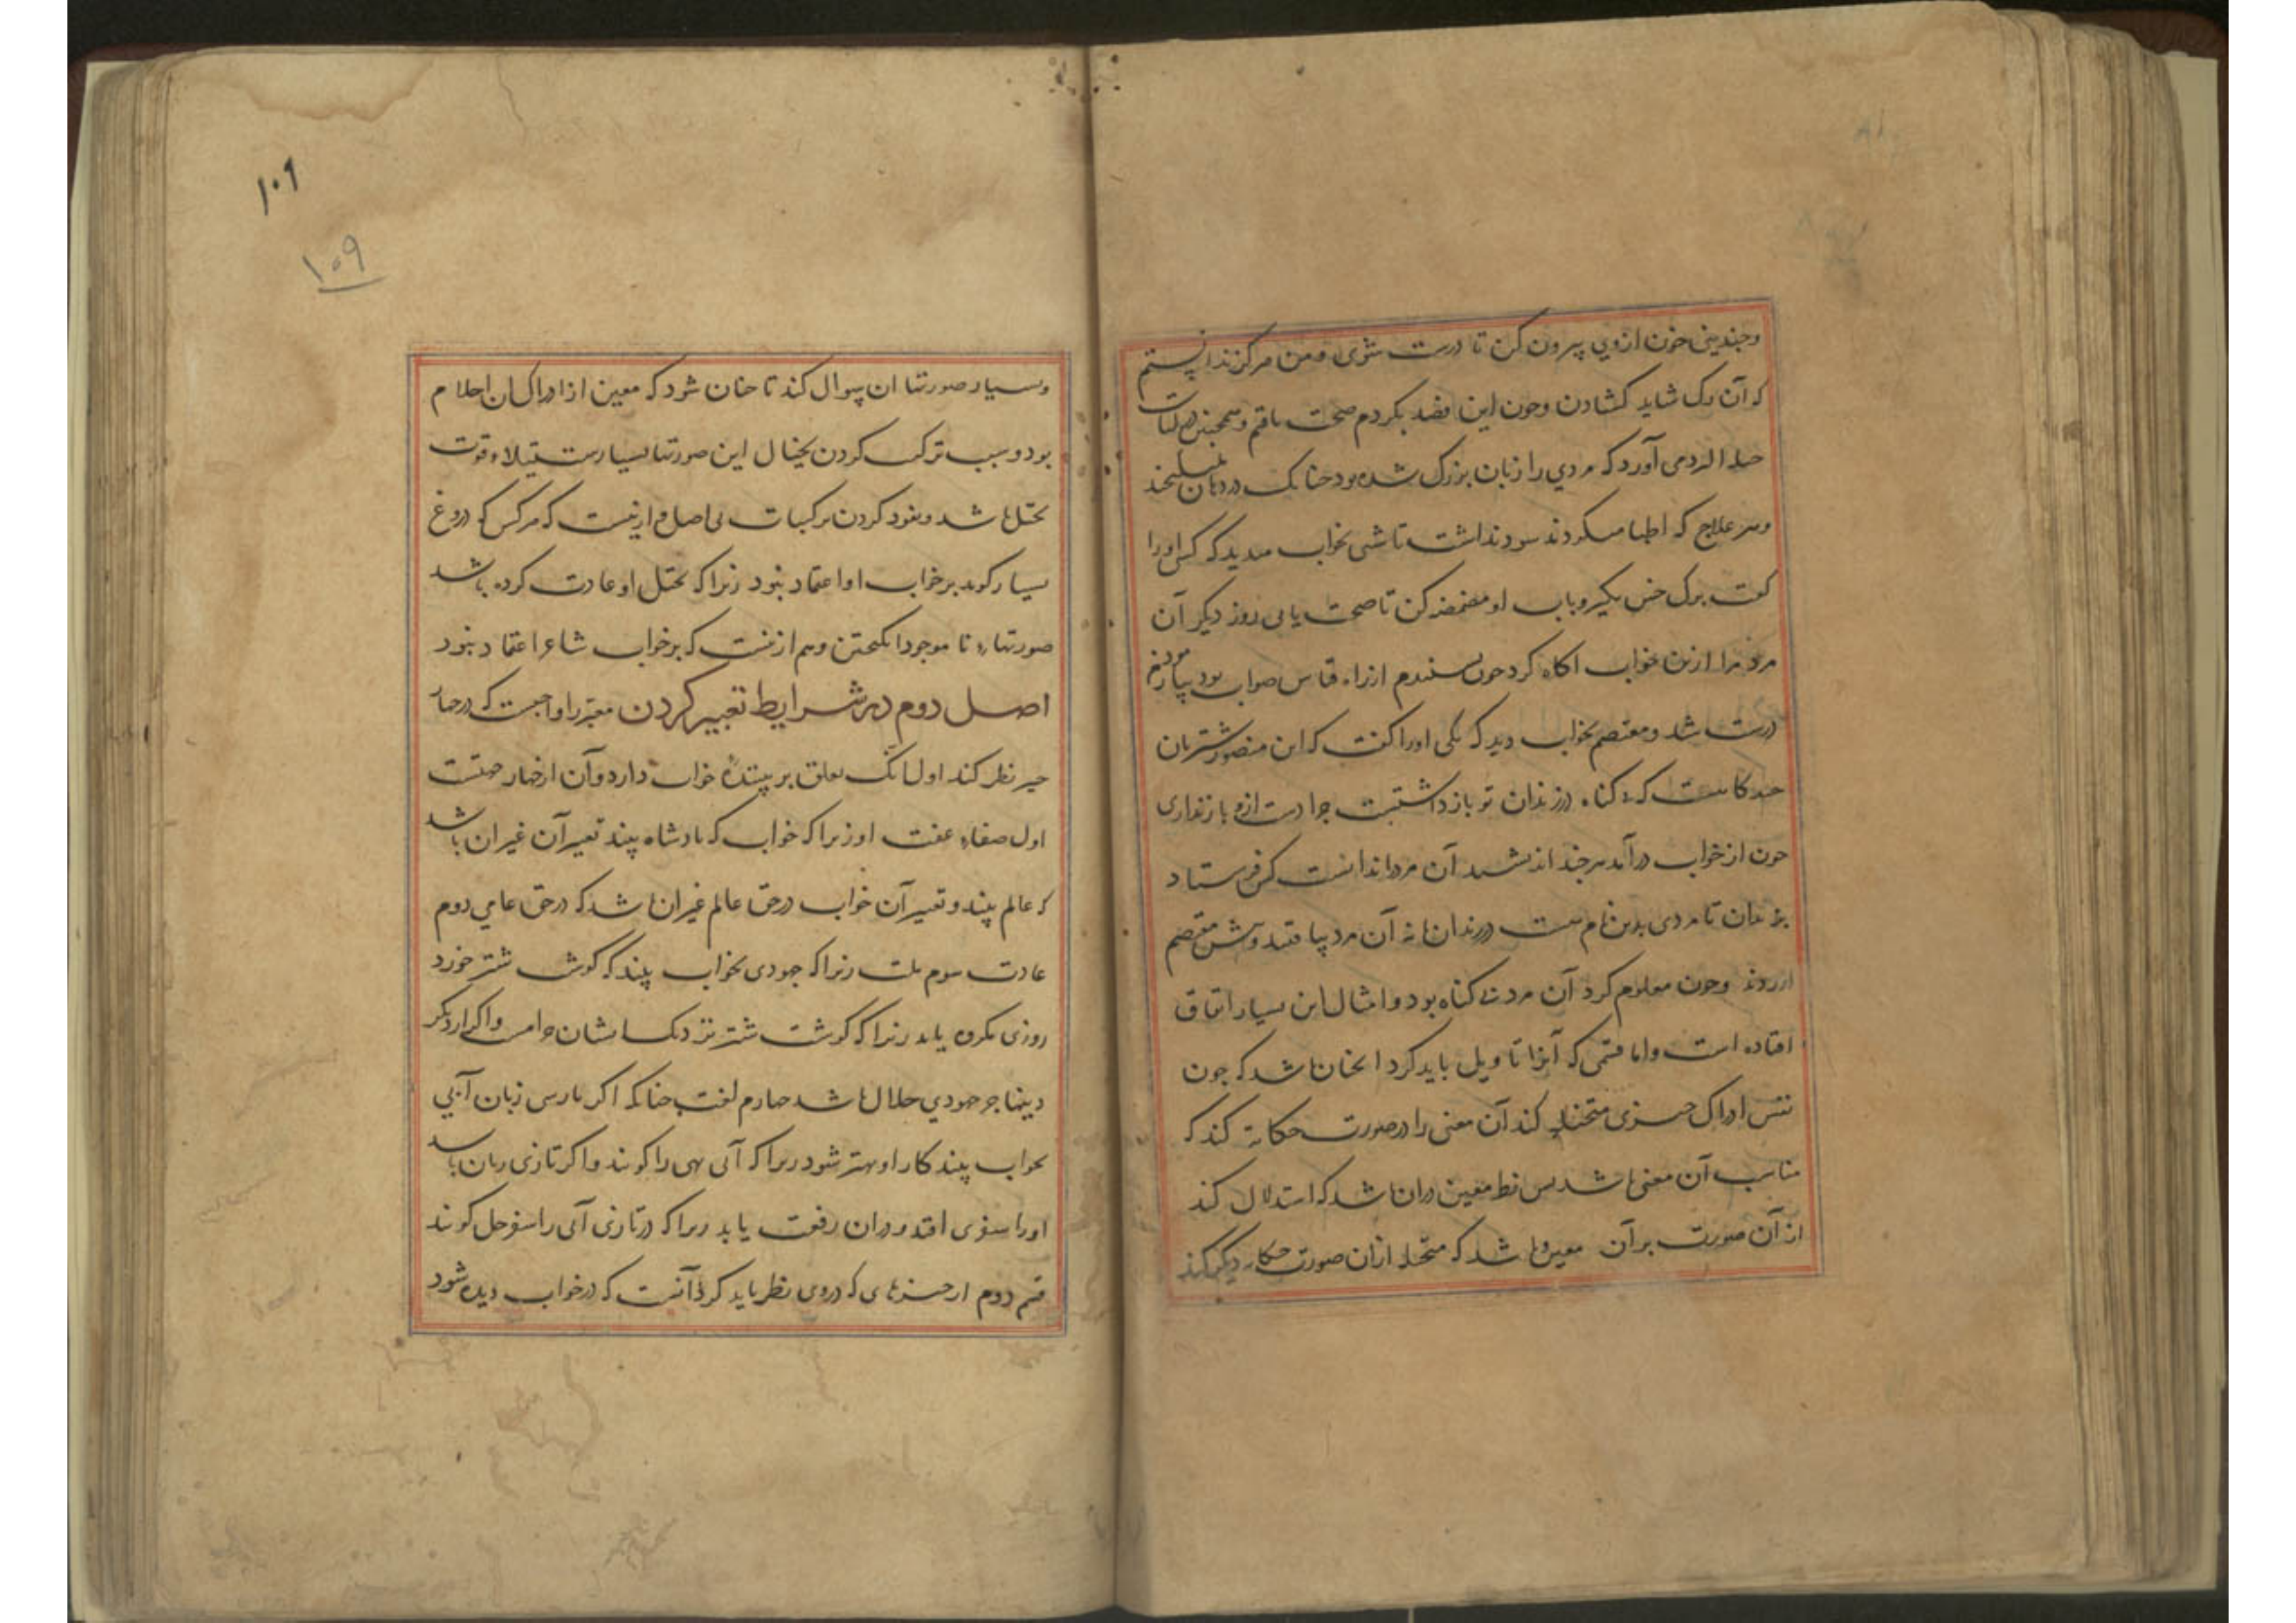 وچندینی خون ازوی بیرون کن تا درست شوی ومن هرگز ندانستم
که آن رک شاید کشادن وچون این فصد بکردم صحت یافتم وهمچنین
می آورد که مردی را زبان بزرک شده بود چنانک در دهان
وهر علاج که اطبا میکردند سود نداشت تا شبی بخواب میدید که کسی اورا
کفت برک خس بکیر وباب او مضمضه کن تا صحت یابی روز دیکر آن
مرد مرا ازین خواب اکاه کرد چون بسنیدم از راه قیاس صواب بود
درست شد ومعتصم بخواب دید که یکی اورا کفت که این منصور شتربان
چه کرده است که بی کناه در زندان تو بازداشتست چرا دست ازو باز نداری
چون از خواب درآمد هرچند اندیشید آن مرد را ندانست کس فرستاد
بزندان تا مردی بدین نام هست در زندان یا نه آن مرد بیافتند وپیش معتصم
اوردند وچون معلوم کرد آن مرد بی کناه بود وامثال این بسیار اتفاق
افتاده است واما قسمی که آنرا تاویل باید کرد انچنان باشد که چون
نفس ادراک چیزی کند آن معنی را در صورت حکایة کند که
مناسب آن معنی باشد پس نظر معبر در آن باشد که استدلال کند
از آن صورت بر آن معنی و باشد که متخیله ازان صورت حکایت دیکر کند
۱۰۹
۱۰۹
وبسیار صورتها ان سوال کند تا چنان شود که معبر از ادراک ان احلام
بود وسبب ترکیب کردن خیال این صورتها بسیارست استیلاء قوت
تخیل باشد وخو کردن ترکیبات بی اصل وازینست که هر کس که دروغ
بسیار کوید بر خواب او اعتماد نبود زیرا که تخیل او عادت کرده باشد
صورتهاء نا موجود انکیختن وهم ازینست که بر خواب شاعر اعتماد نبود
اصل دوم در شرایط تعبیر کردن معبر را واجبست که در چهار
چیز نظر کند اول انک تعلق بر بینندهٔ خواب دارد وآن از چهار جهتست
اول صفاء عفت او زیرا که خواب که بادشاه بیند تعبیر آن غیر ان باشد
که عالم بیند وتعبیر آن خواب در حق عالم غیر ان باشد که در حق عامی دوم
عادت سوم ملت زیرا که جهودی بخواب بیند که کوشت شتر خورد
روزی مکروه یابد زیرا که کوشت شتر نزدیک ایشان حرامست واکر از دیکر
دینها جز جهودی حلال باشد چهارم لغت چنانکه اکر پارسی زبان آبی
بخواب بیند کار او بهتر شود زیرا که آبی بهی را کویند واکر تازی زبان باشد
اورا سفری افتد ودران رفعت یابد زیرا که در تازی آبی را سفرجل کویند
قسم دوم از چیزهای که در وی نظر باید کرد آنست که در خواب دیده شود